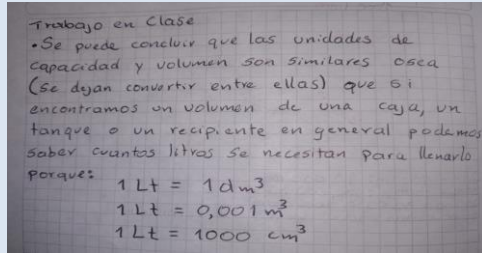 Trabajo en Clase
• Se puede concluir que las unidades de
capacidad y volumen son similares osca
(se dejan convertir entre ellas) que si
encontramos un volumen de una caja, un
tanque o un recipiente en general podemos
saber cuantos litros se necesitan para llenarlo
porque:
1 Lt = 1 dm³
1 Lt = 0,001 m³
1 Lt = 1000 cm³